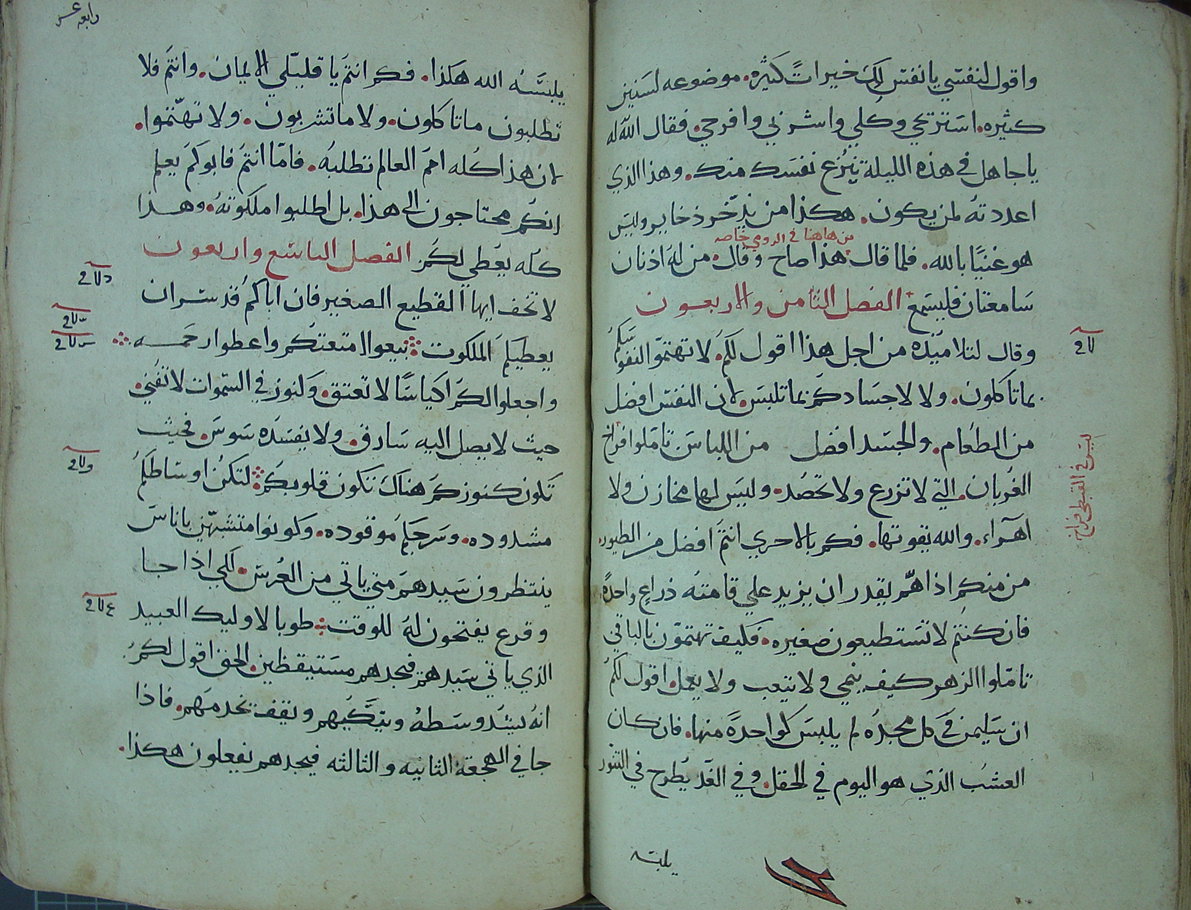 واقول لنفسي يا نفس لك خيرات كثيره. موضوعه لسنين
كثيره. استريحي وكلي واشربي وافرحي. فقال الله له
يا جاهل في هذه الليلة تنزع نفسك منك. وهذا الذي
اعددته لمن يكون. هكذا من يدّخر ذخاير وليس
من هاهنا في الرومي خاصه
هو غنيًا بالله. فلما قال هذا صاح وقال. من له اذنان
سامعتان فليسمع الفصل الثامن والاربعون
وقال لتلاميذه من اجل هذا اقول لكم. لا تهتموا لنفوسكم
بما تاكلون. ولا لاجسادكم بما تلبس. لان النفس افضل
من الطعام. والجسد افضل من اللباس تاملوا فراخ
ليس في القبطي فراخ
الغربان. التي لا تزرع ولا تحصد. وليس لها مخازن ولا
اهرآء. والله يقوتها. فكم بالاحري انتم افضل من الطيور
من منكم اذا هم يقدر ان يزيد علي قامته ذراع واحدة
فان كنتم لا تستطيعون صغيره. فكيف تهتمون بالباقي
تاملوا الزهر كيف ينمي ولا يتعب ولا يعمل. اقول لكم
ان سليمن في كل مجده لم يلبس كواحدة منها. فان كان
العشب الذي هو اليوم في الحقل. وفي الغد يطرح في التنور
يلبسه
رابعه عشر
يلبسه الله هكذا. فكم انتم يا قليلي الايمان. وانتم فلا
تطلبون ما تاكلون. ولا ما تشربون. ولا تهتموا.
لان هذا كله امم العالم تطلبه. فاما انتم فابوكم يعلم
انكم محتاجون الي هذا. بل اطلبوا ملكوته. وهذا
كله يعطي لكم الفصل التاسع واربعون
لا تخف ايها القطيع الصغير فان اباكم قد سر ان
يعطيكم الملكوت بيعوا امتعتكم واعطوا رحمه
واجعلوا لكم اكياسًا لا تعتق. وكنوز في السموات لا تفني.
حيث لا يصل اليه سارق. ولا يفسده سوس. فحيث
تكون كنوزكم هناك تكون قلوبكم لتكن اوساطكم
مشدوده. وسرجكم موقوده. وكونوا متشبهين باناس
ينتظرون سيدهم متي ياتي من العرس. لكي اذا جا
وقرع يفتحون له للوقت طوبا لاوليك العبيد
الذي ياتي سيدهم فيجدهم مستيقظين. الحق اقول لكم
انه يشد وسطه ويتكيهم ويقف يخدمهم. فاذا
جا في الهجعة الثانيه والثالثه فيجدهم يفعلون هكذا.